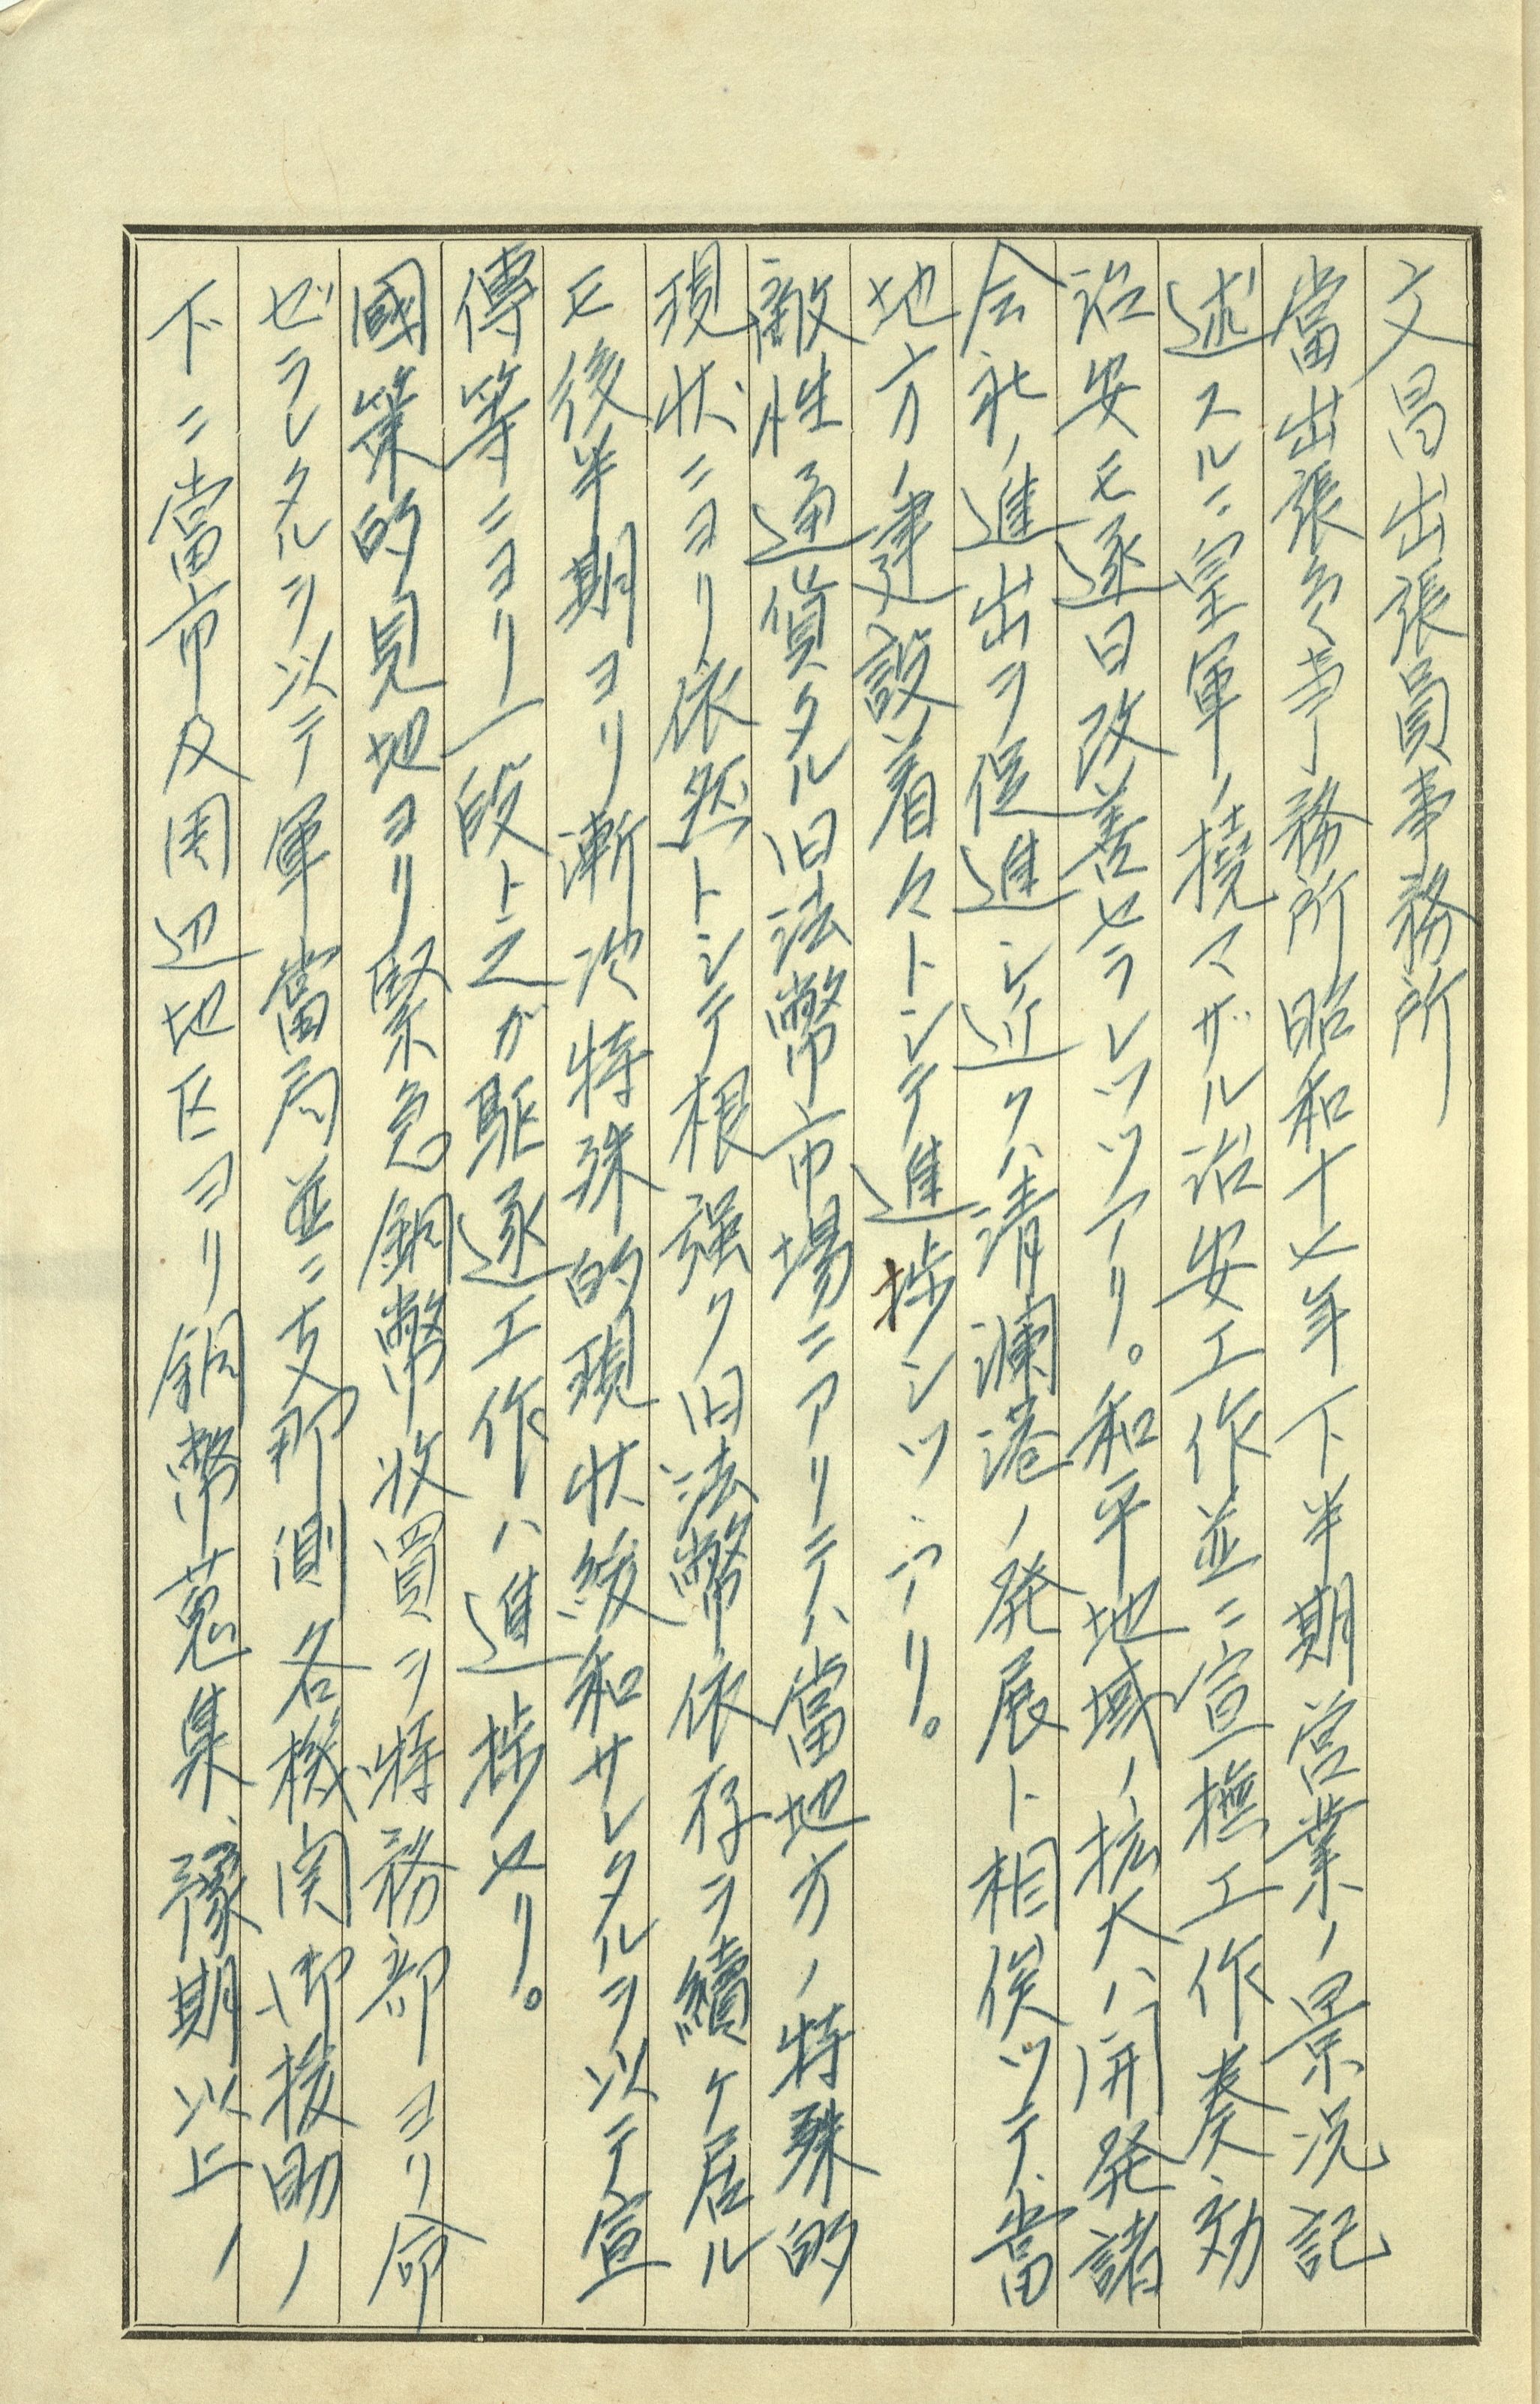 文昌出張員事務所
當出張員事務所昭和十七年下半期営業ノ景況記
述スルニ皇軍ノ撓マザル治安工作並ニ宣撫工作奏効
治安モ逐日改善セラレツツアリ。和平地域ノ拡大ハ開発諸
会社ノ進出ヲ促進シ近クハ清瀾港ノ発展ト相俟ツテ、當
地方ノ建設着々トシテ進捗シツツアリ。
敵性通貨タル旧法幣市場ニアリテハ當地方ノ特殊的
現状ニヨリ依然トシテ根強ク旧法幣依存ヲ續ケ居ル
モ後半期ヨリ漸次特殊的現状緩和サレタルヲ以テ宣
傳等ニヨリ一段ト之ガ駆逐工作ハ進捗セリ。
國策的見地ヨリ緊急銅幣収買ヲ特務部ヨリ命
ゼラレタルヲ以テ軍當局並ニ支那側各機関御援助ノ
下ニ當市及周辺地区ヨリ銅幣蒐集、豫期以上ノ